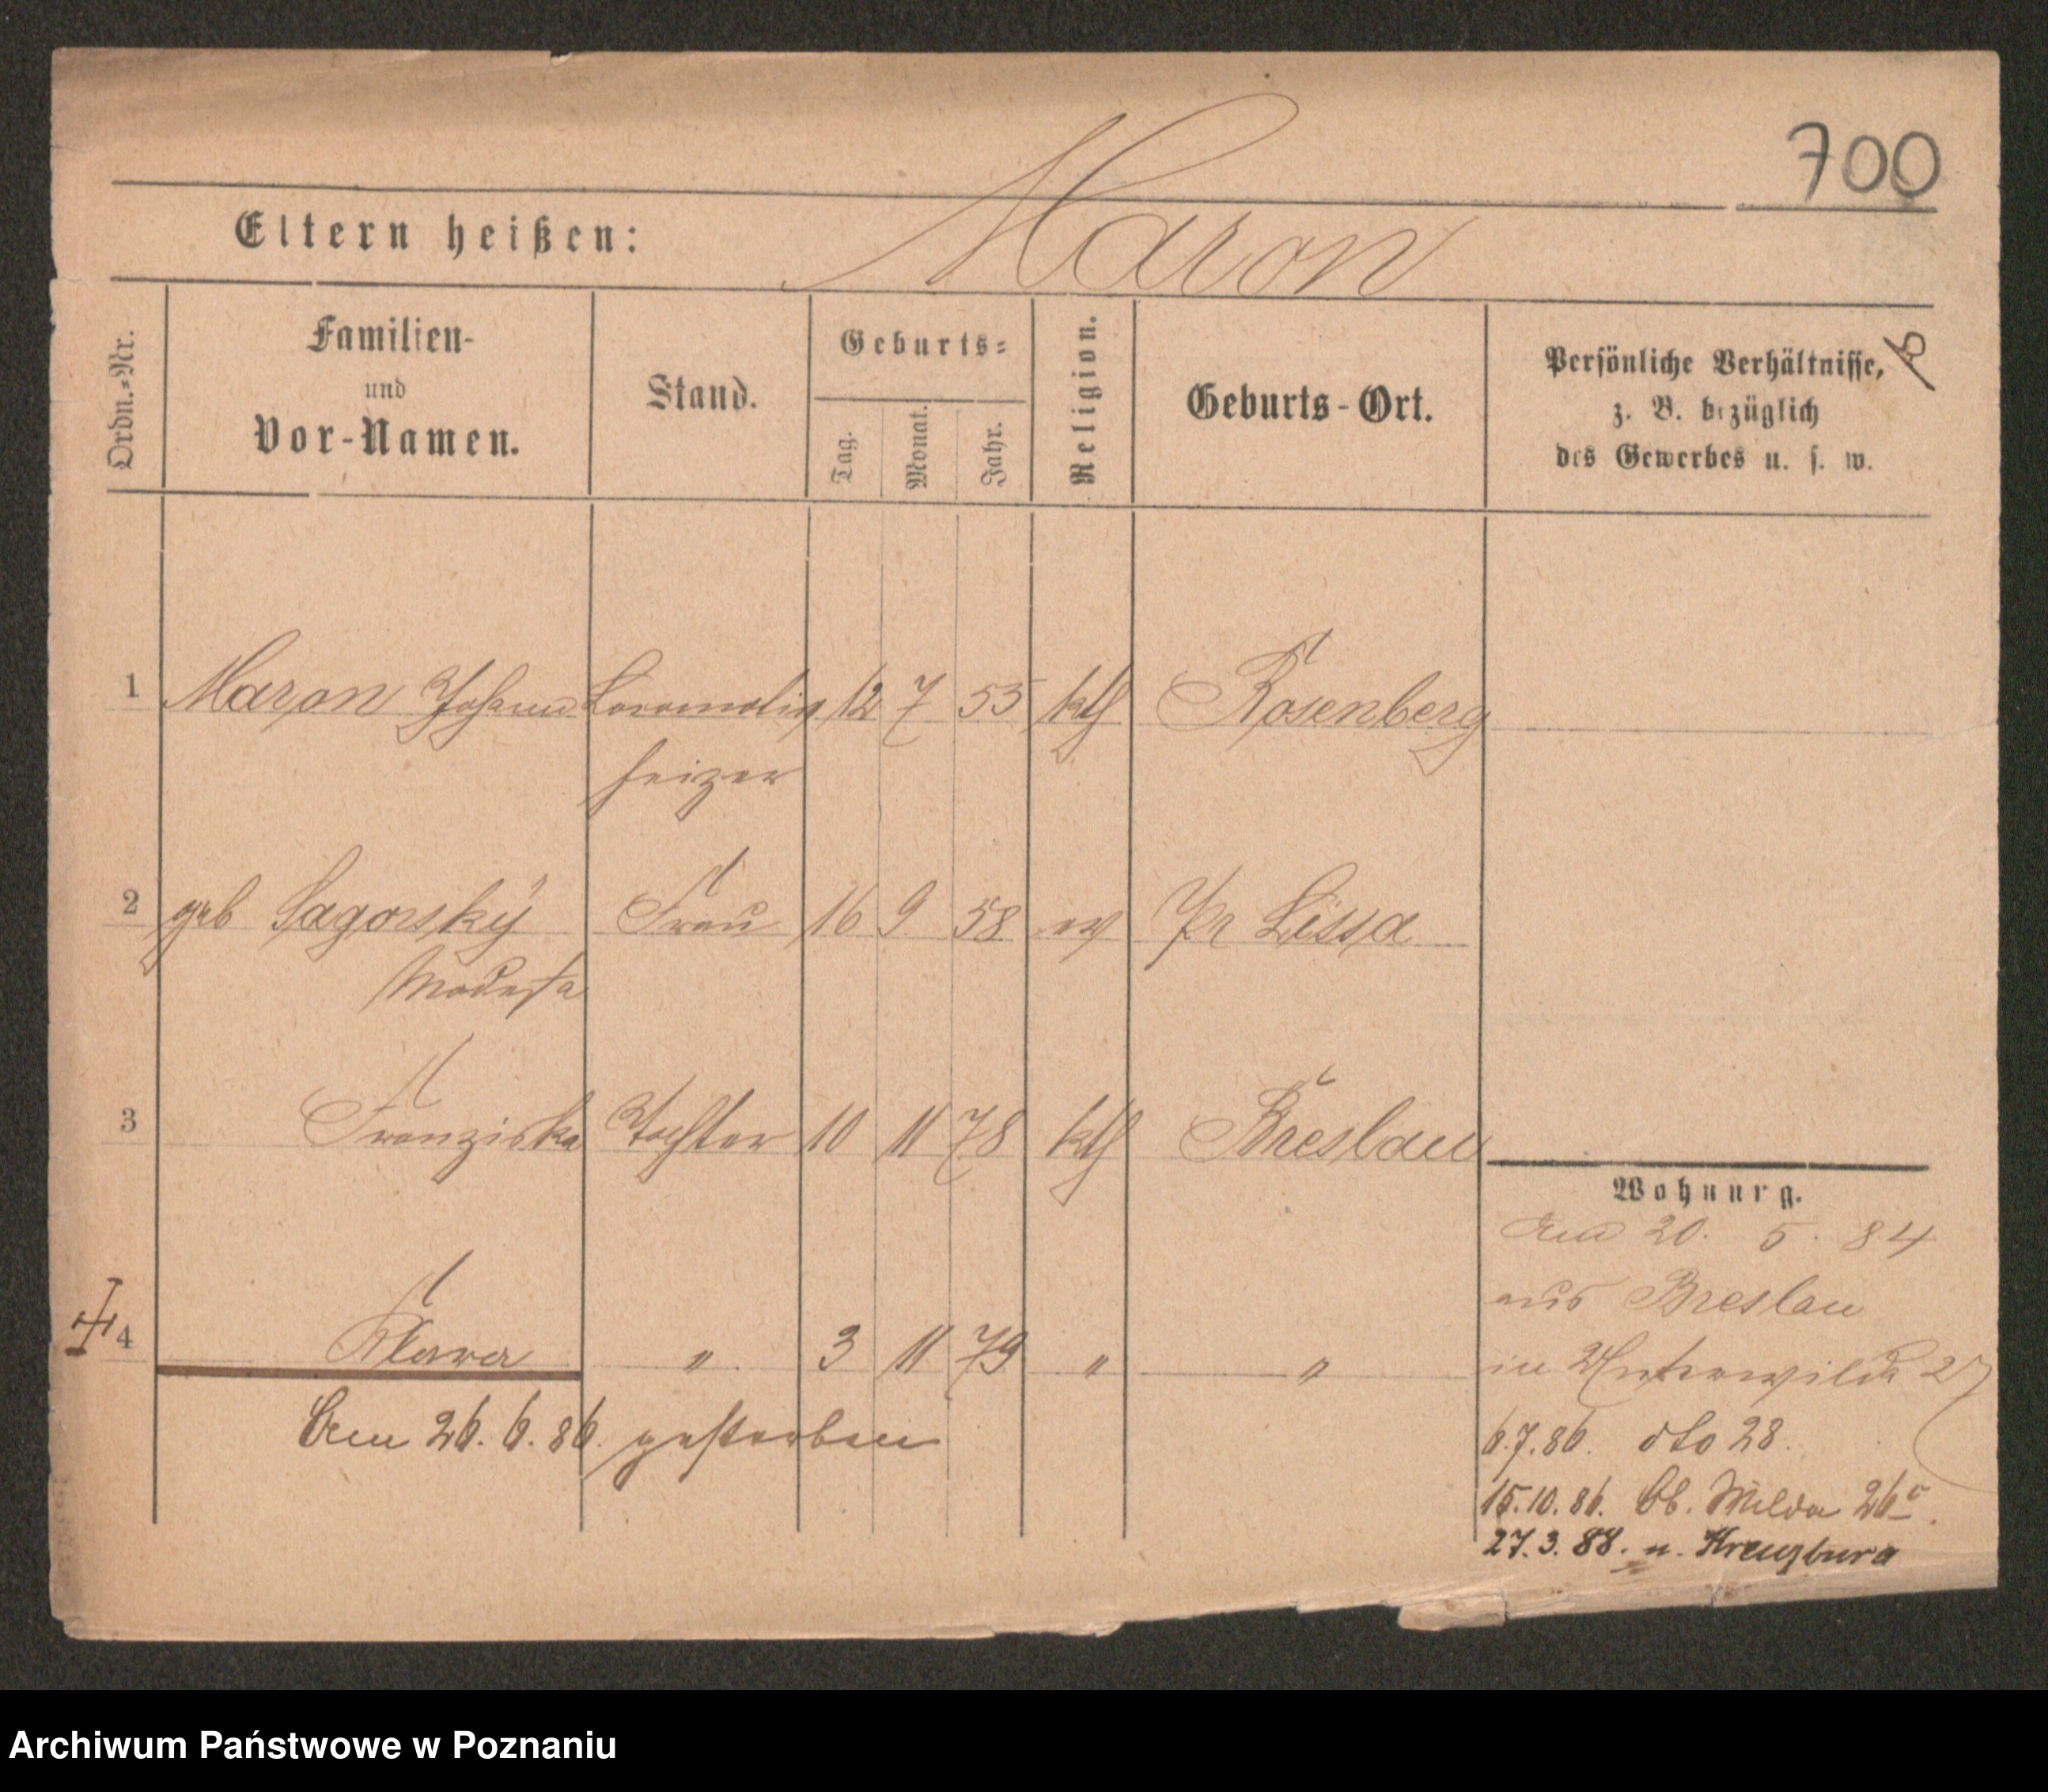 700
Eltern heißen: Maron
Ordn.-Nr.
Familien-
und
Vor-Namen.
Stand.
Geburts-
Tag.
Monat.
Jahr.
Religion.
Geburts-Ort.
Persönliche Verhältnisse,
z. B. bezüglich
des Gewerbes u. s. w.
1 Maron Johann Locomotiv 12 7 55 kth Rosenberg
heizer
2 geb Sagorsky Frau 16 9 58 ev Pr Lissa
Modesta
3 Franziska Tochter 10 11 78 kth Breslau
Wohnung.
20. 5. 84
aus Breslau
4 Klara " 3 11 79 " "
in Unterwilda 27
Am 26. 6. 86. gestorben
6.7.86. dto 28.
15.10.86. Ob. Wilda 26
27.3.88. n. Kreuzburg
Archiwum Państwowe w Poznaniu